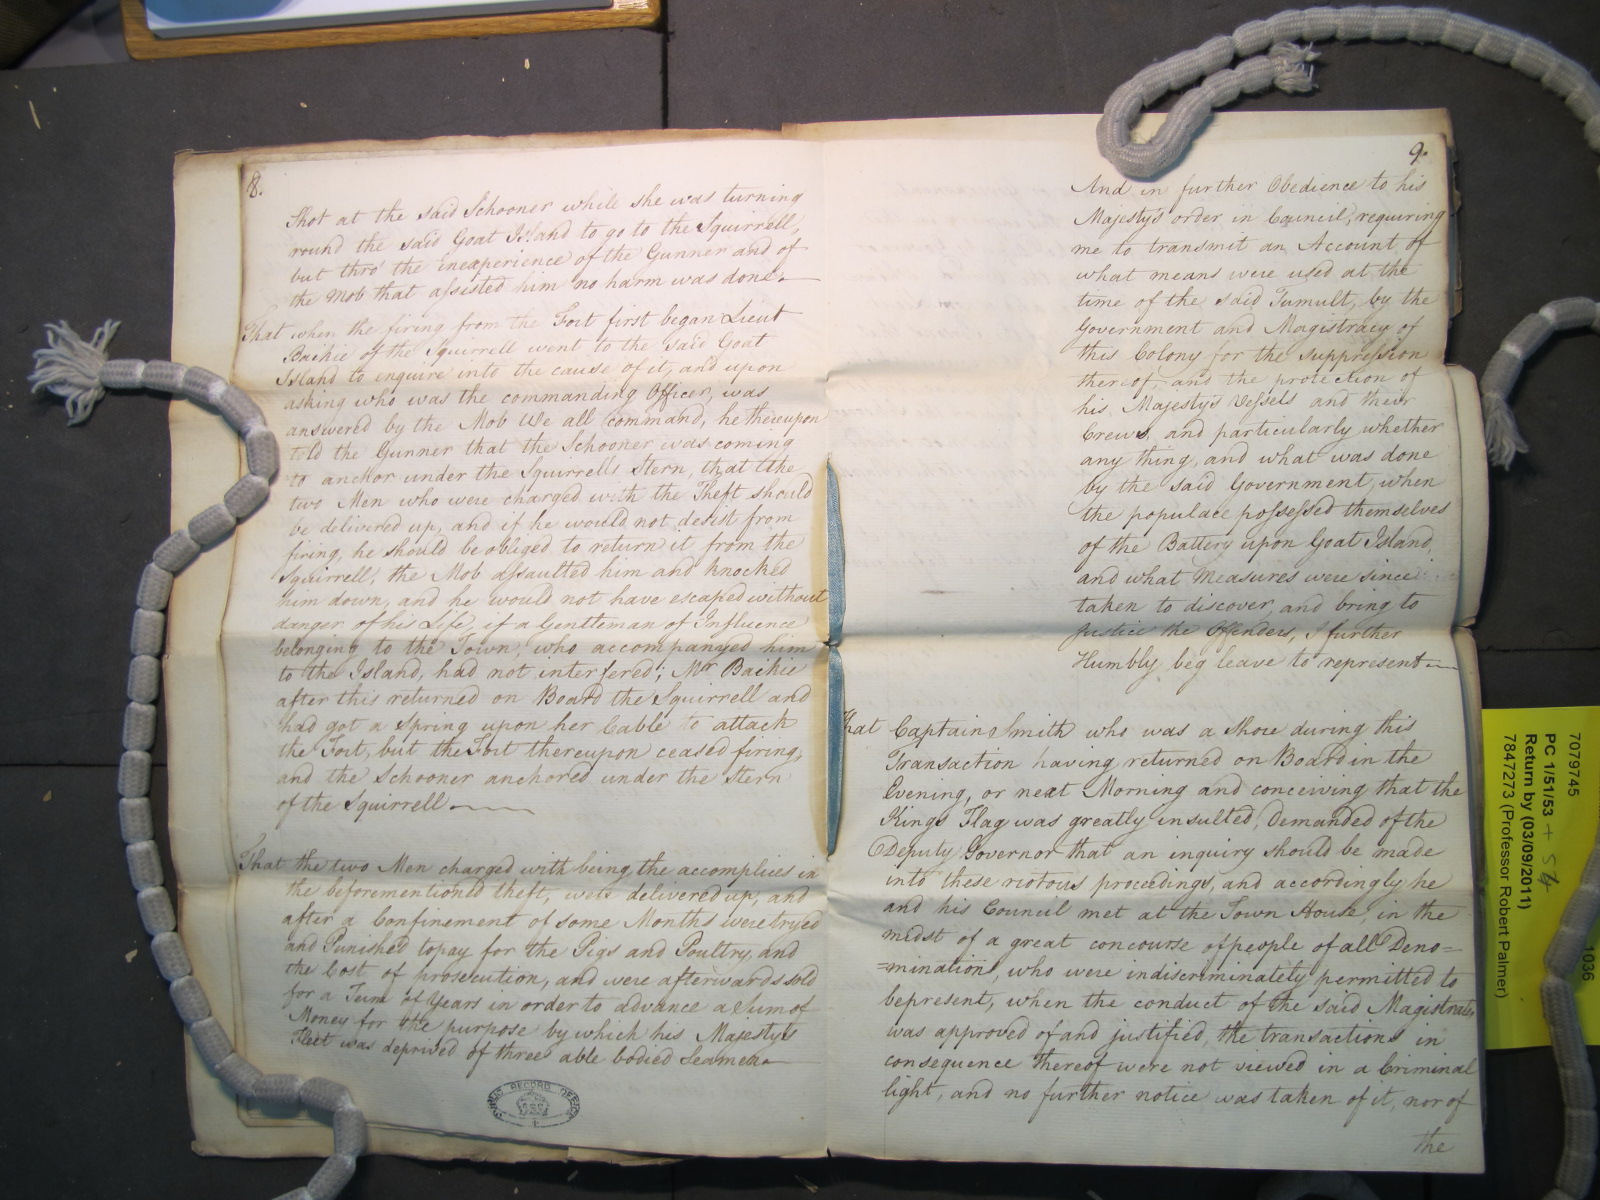 8.
Shot at the said Schooner while she was turning
round the said Goat Island to go to the Squirrell,
but thro' the inexperience of the Gunner and of
the Mob that assisted him no harm was done.
That when the firing from the Fort first began Lieut
Backie of the Squirrell went to the said Goat
Island to enquire into the cause of it, and upon
asking who was the commanding Officer, was
answered by the Mob We all command, he thereupon
told the Gunner that the Schooner was coming
to anchor under the Squirrells Stern, that the
two Men who were charged with the Theft should
be delivered up, and if he would not desist from
firing, he should be obliged to return it from the
Squirrell, the Mob assaulted him and knocked
him down, and he would not have escaped without
danger of his Life, if a Gentleman of Influence
belonging to the Town, who accompanyed him
to the Island, had not interfered; Mr Backie
after this returned on Board the Squirrell and
had got a Spring upon her Cable to attack
the Fort, but the Fort thereupon ceased firing,
and the Schooner anchored under the Stern
of the Squirrell
That the two Men charged with being the accomplices in
the beforementioned theft, were delivered up, and
after a Confinement of some Months were tryed
and Punished to pay for the Pigs and Poultry, and
the Cost of prosecution, and were afterwards sold
for a Term of Years in order to advance a Sum of
Money for the purpose by which his Majesty's
Fleet was deprived of three able bodied Seamen
PUBLIC RECORD OFFICE
9.
And in further Obedience to his
Majesty's order in Council, requiring
me to transmit an Account of
what means were used at the
time of the said Tumult, by the
Government and Magistracy of
this Colony for the suppression
thereof, and the protection of
his Majesty's Vessels and their
Crews, and particularly whether
any thing, and what was done
by the said Government, when
the populace possessed themselves
of the Battery upon Goat Island,
and what Measures were since
taken to discover, and bring to
Justice the Offenders, I further
Humbly beg leave to represent
That Captain Smith who was a Shore during this
Transaction having returned on Board in the
Evening, or next Morning and conceiving that the
Kings Flag was greatly insulted, Demanded of the
Deputy Governor that an inquiry should be made
into these riotous proceedings, and accordingly he
and his Council met at the Town House, in the
midst of a great concourse of people of all Deno=
=minations, who were indiscriminately permitted to
be present, when the conduct of the said Magistrates
was approved of and justified, the transactions in
consequence thereof were not viewed in a Criminal
light, and no further notice was taken of it, nor of
the
7079745
PC 1/51/53 + 54
Return by (03/09/2011)
7847273 (Professor Robert Palmer)
1036